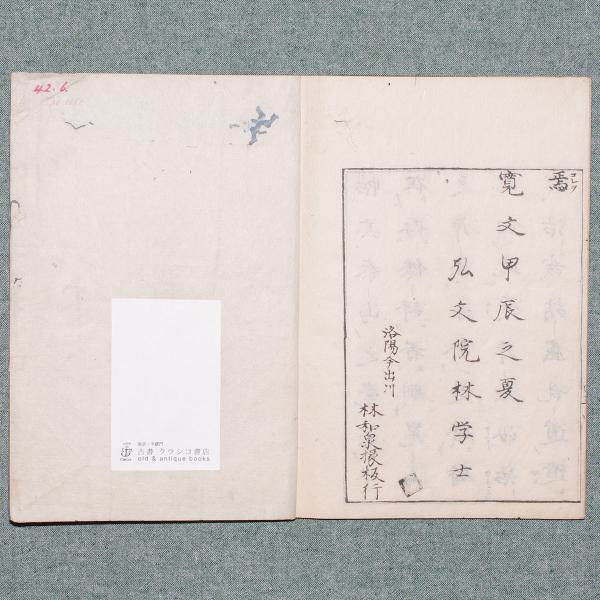 焉コレヲ
寛文甲辰之夏
弘文院林学士
洛陽今出川
林和泉掾板行
42.6.
東京・半蔵門
古書 クラシコ書店
old & antique books